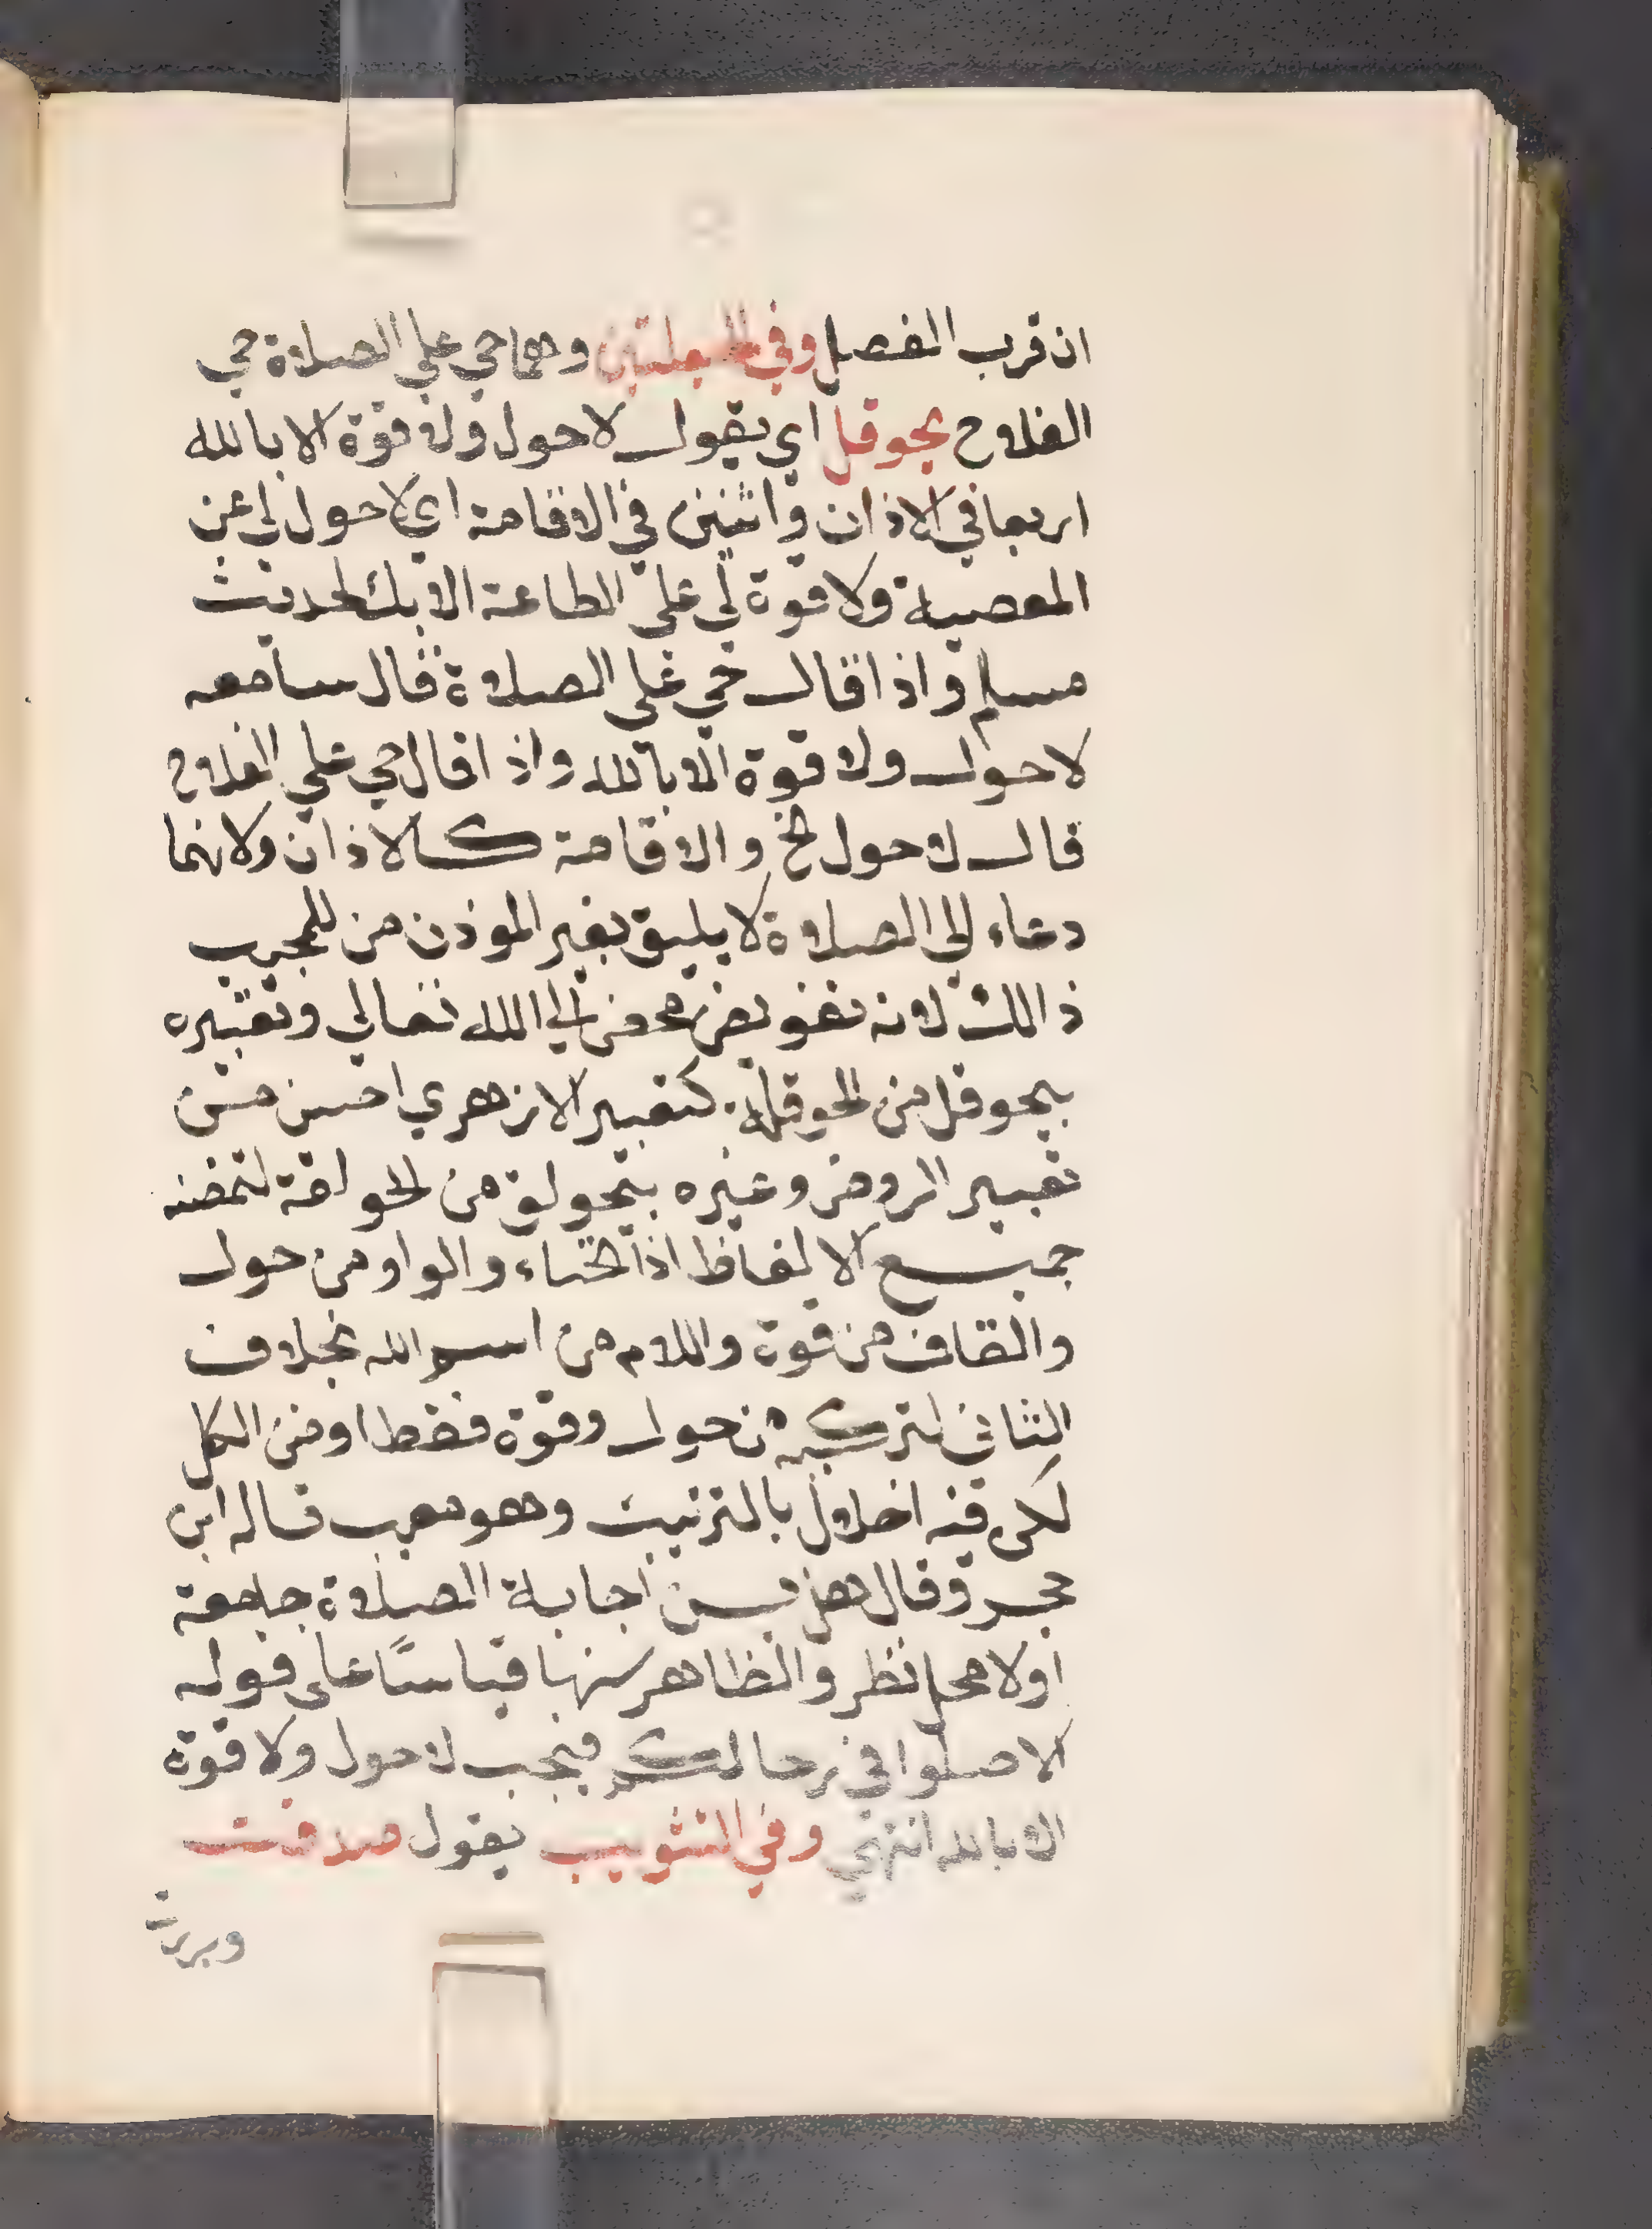 ان قرب الفصل وفي الحيعلتين وهما حي علي الصلاة حي
الفلاح يحوقل اي يقول لا حول ولا قوة الا بالله
اربعا في الاذان واثنين في الاقامة اي لا حول لي عن
المعصية ولا قوة لي علي الطاعة الا بك لحديث
مسلم واذا قال حي علي الصلاة قال سامعه
لا حول ولا قوة الا بالله واذا قال حي علي الفلاح
قال لا حول الخ والاقامة كالاذان ولانهما
دعاء الي الصلاة لا يليق بغير الموذن من المجيب
ذالك لانه تفويض محض الي الله تعالي وتعبيره
بيحوقل من الحوقلة كتعبير الازهري احسن من
تعبير الروض وغيره بيحولق من الحولقة لتضمنه
جميع الالفاظ اذ الحاء والواو من حول
والقاف من قوة واللام من اسم الله بخلاف
الثاني لتركبه من حول وقوة فقط او من الكل
لكن فيه اخلال بالترتيب وهو معيب قاله ابن
حجر وقال هل يسن اجابة الصلاة جامعة
اولا محل نظر والظاهر سنها قياسًا على قوله
الا صلوا في رحالكم فيجب لا حول ولا قوة
الا بالله انتهي وفي التثويب يقول صدقت
وبررت